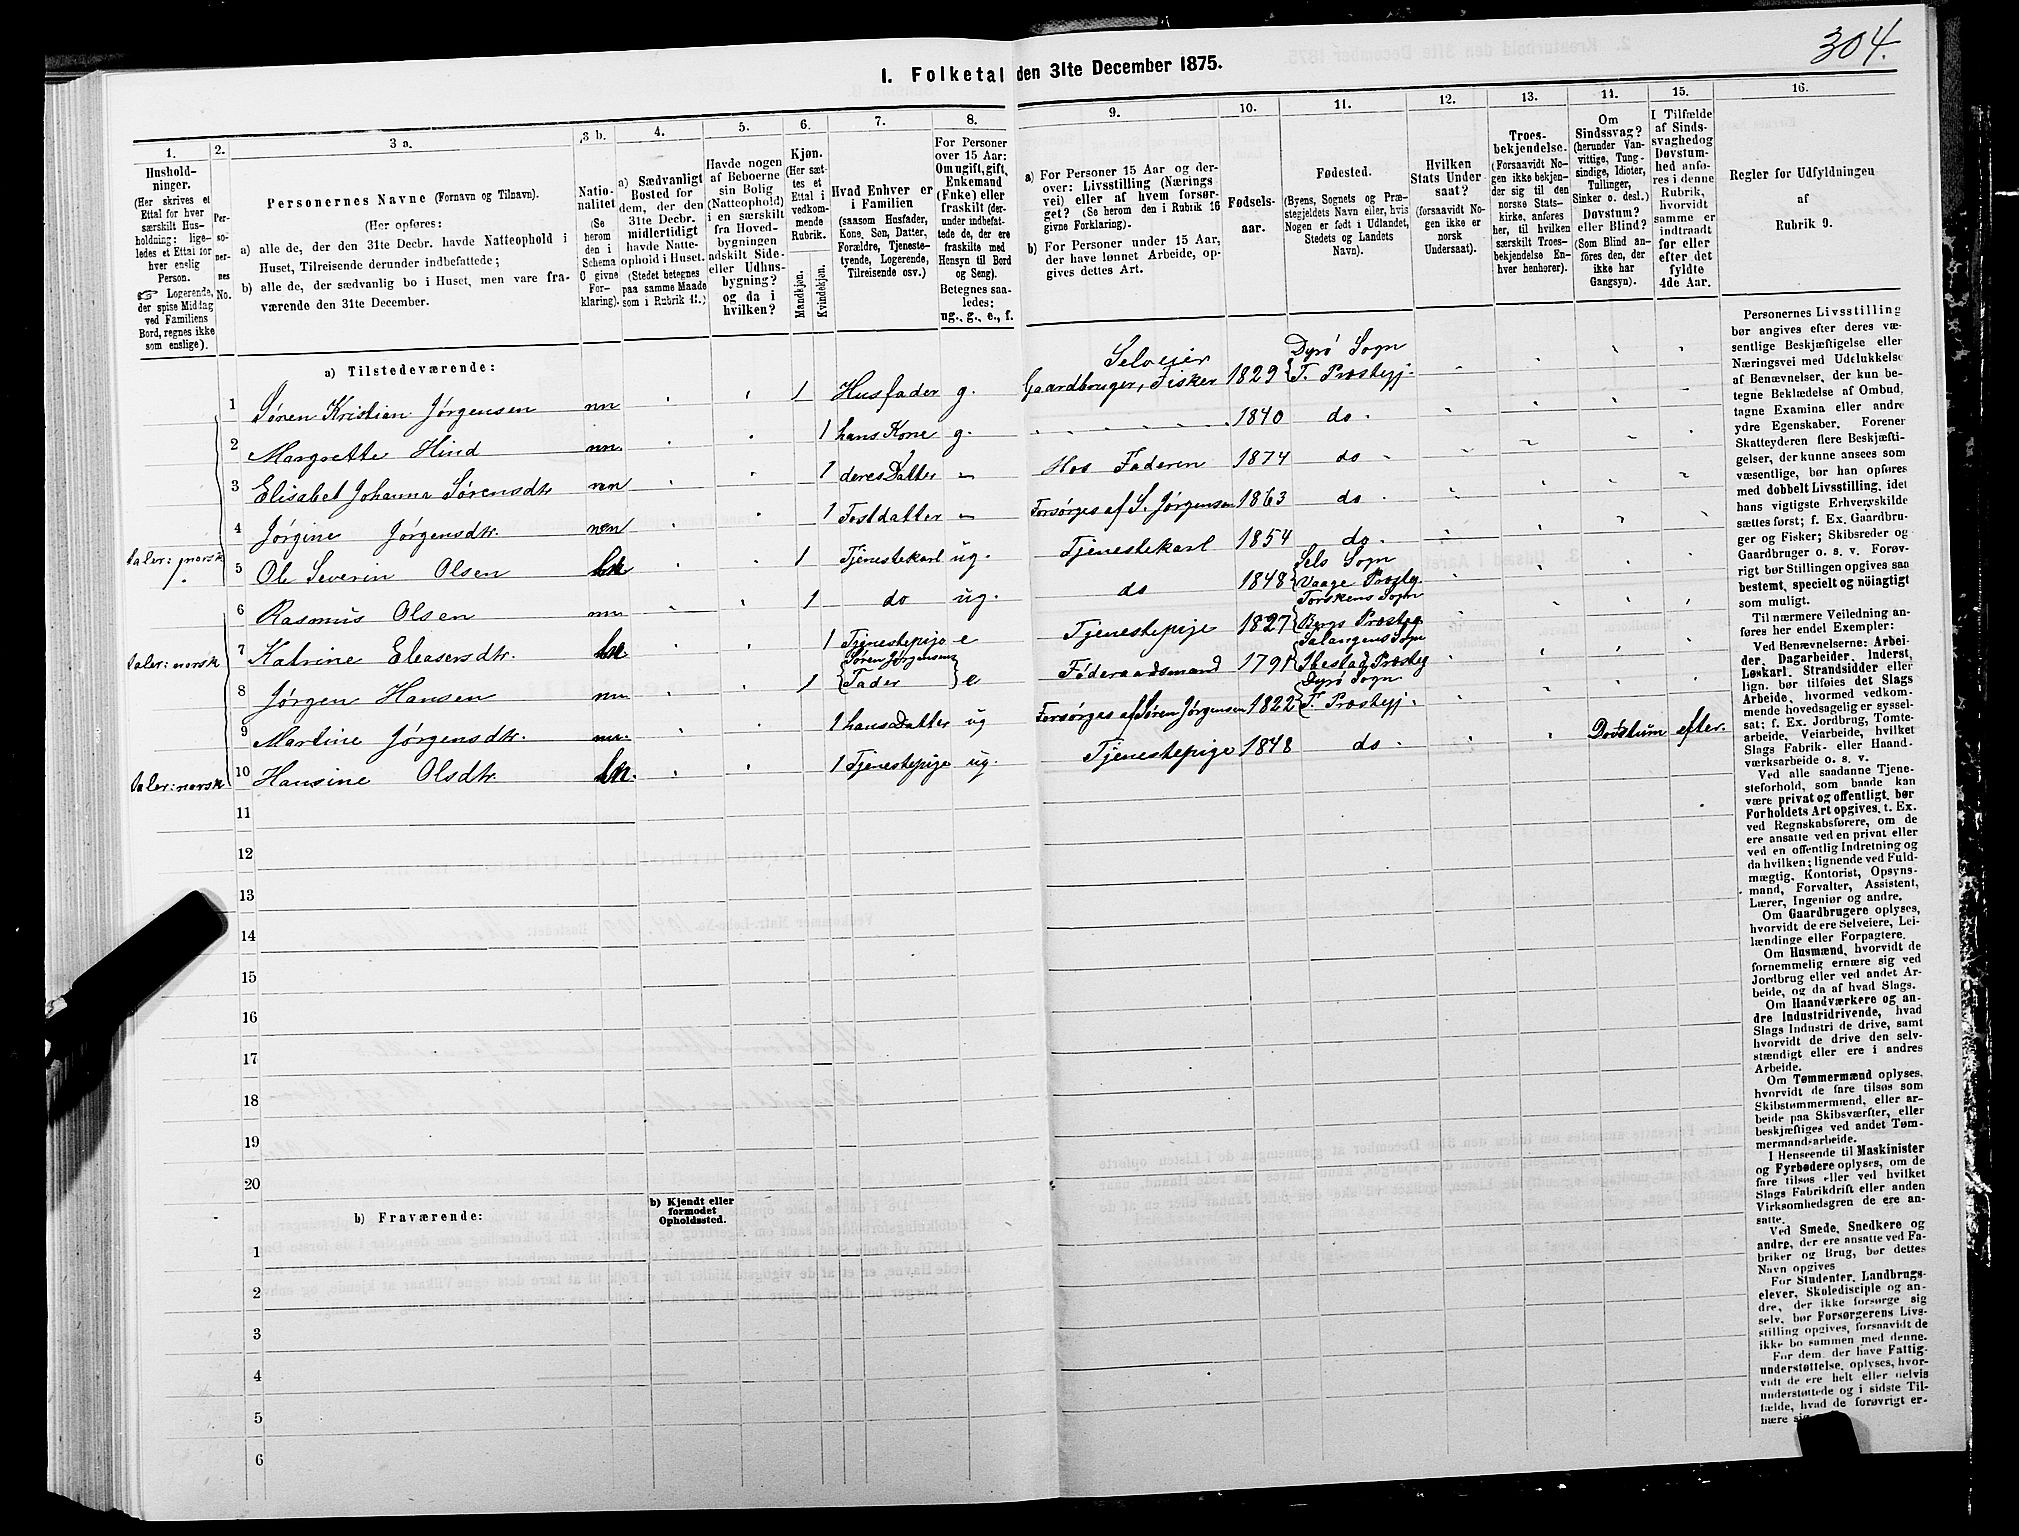 304.
1. Folketal den 31te December 1875.
1.
Hushold-
ninger.
(Her skrives et
Ettal for hver
særskilt Hus-
holdning: lige-
ledes et Ettal for
hver enslig
Person.
☞ Logerende,
der spise Middag
ved Familiens
Bord, regnes ikke
som enslige).
2.
Per-
so-
ner-
nes
No.
3 a.
Personernes Navne (Fornavn og Tilnavn).
(Her opføres:
a) alle de, der den 31te Decbr. havde Natteophold i
Huset, Tilreisende derunder indbefattede;
b) alle de, der sædvanlig bo i Huset, men vare fra-
værende den 31te December.
3 b.
Natio-
nalitet
(Se
herom
den i
Schema
C givne
For-
klaring).
4.
a) Sædvanligt
Bosted for
dem, der den
31te Decbr.
midlertidigt
havde Natte-
ophold i Huset.
(Stedet betegnes
paa samme Maade
som i Rubrik 11.)
5.
Havde nogen
af Beboerne
sin Bolig
(Natteophold)
i en særskilt
fra Hoved-
bygningen
adskilt Side-
eller Udhus-
bygning?
og da i
hvilken?
6.
Kjøn.
(Her sæt-
tes et
Ettal i
vedkom-
mende
Rubrik.
Mandkjøn.
Kvindekjøn.
7.
Hvad Enhver er
i Familien
(saasom Husfader,
Kone, Søn, Datter,
Forældre, Tjeneste-
tyende, Logerende,
Tilreisende osv.)
8.
For Personer
over 15 Aar:
Om ugift, gift,
Enkemand
(Enke) eller
fraskilt (der-
under indbefat-
tede de, der ere
fraskilte med
Hensyn til Bord
og Seng).
Betegnes saa-
ledes:
ug., g., e., f.
9.
a) For Personer 15 Aar og der-
over: Livsstilling (Nærings-
vei) eller af hvem forsør-
get? (Se herom den i Rubrik 16
givne Forklaring).
b) For Personer under 15 Aar,
der have lønnet Arbeide, op-
gives dettes Art.
10.
Fødsels-
aar.
11.
Fødested.
(Byens, Sognets og Præ-
stegjeldets Navn eller, hvis
Nogen er født i Udlandet,
Stedets og Landets
Navn).
12.
Hvilken
Stats Under-
saat?
(forsaavidt No-
gen ikke er
norsk
Undersaat).
13.
Troes-
bekjendelse.
(Forsaavidt No-
gen ikke bekjen-
der sig til den
norske Stats-
kirke, anføres
her, til hvilken
særskilt Troes-
bekjendelse En-
hver henhorer).
14.
Om
Sindssvag?
(herunder Van-
vittige, Tung-
sindige, Idioter,
Tullinger,
Sinker o. desl.)
Døvstum?
eller Blind?
(Som Blind an-
føres den, der
ikke har
Gangsyn).
15.
I Tilfælde
af Sinds-
svaghed og
Døvstum-
hed anfø-
res i denne
Rubrik,
hvorvidt
samme er
indtraadt
før eller
efter det
fyldte
4de Aar.
16.
Regler for Udfyldningen
af
Rubrik 9.
a) Tilstedeværende:
1 Søren Kristian Jørgensen nn 1 Husfader g. Selveier Gaardbruger, Fisker 1829 Dyrø Sogn T. Præstegj.
2 Margrette Hind nn. 1 hans Kone g. 1840 do
3 Elisabet Johanna Sørensdtr nn 1 deres Datter Hos Faderen 1874 do
4 Jørgine Jørgensdtr. nn 1 Fostdatter Forsørges af S. Jørgensen 1863 do
taler: norsk 5 Ole Severin Olsen 1 Tjenestekarl ug. Tjenestekarl 1854 do.
6 Rasmus Olsen nn. 1 do ug. do 1848 Sels Sogn Vaage Præsteg
taler: norsk 7 Katrine Eleasersdtr. 1 Tjenestepige e Tjenestepige 1827 Torskens Sogn Bergs Præsteg
8 Jørgen Hansen nn. 1 Søren Jørgensens Fader e Føderaadsmand 1791 Salangens Sogn Ibestad Præsteg
9 Martine Jørgensdtr. nn. 1 hans Datter ug Forsørges af Søren Jørgensen 1822 Dyrø Sogn T. Præstegj. Døvstum efter.
taler: norsk 10 Hansine Olsdtr. 1 Tjenestepige ug. Tjenestepige 1848 do.
11
12
13
14
15
16
17
18
19
20
b) Fraværende:
b) Kjendt eller
formodet
Opholdssted.
1
2
3
4
5
6
Personernes Livsstilling
bør angives efter deres væ-
sentlige Beskjæftigelse eller
Næringsvei med Udelukkelse
af Benævnelser, der kun be-
tegne Beklædelse af Ombud,
tagne Examina eller andre
ydre Egenskaber. Forener
Skatteyderen flere Beskjæfti-
gelser, der kunne ansees som
væsentlige, bør han opføres
med dobbelt Livsstilling, idet
hans vigtigste Erhvervskilde
sættes først; f. Ex. Gaardbru-
ger og Fisker; Skibsreder og
Gaardbruger o. s. v. Forøv-
rigt bør Stillingen opgives saa
bestemt, specielt og nöiagtigt
som muligt.
Til nærmere Veiledning an-
føres her endel Exempler:
Ved Benævnelserne: Arbei-
der, Dagarbeider, Inderst,
Løskarl, Strandsidder eller
lign. bør tilføies det Slags
Arbeide, hvormed vedkom-
mende hovedsagelig er syssel-
sat; f. Ex. Jordbrug, Tomte-
arbeide, Veiarbeide, hvilket
Slags Fabrik- eller Haand-
værksarbeide o. s. v.
Ved alle saadanne Tjene-
steforhold, som baade kan
være privat og offentligt, bør
Forholdets Art opgives, t. Ex.
ved Regnskabsførere, om de
ere ansatte ved en privat eller
ved en offentlig Indretning og
da hvilken; lignende ved Fuld-
mægtig, Kontorist, Opsyns-
mand, Forvalter, Assistent,
Lærer, Ingeniør og andre.
Om Gaardbrugere oplyses,
hvorvidt de ere Selveiere, Lei-
lændinge eller Forpagtere.
Om Husmænd, hvorvidt de
fornemmelig ernære sig ved
Jordbrug eller ved andet Ar-
beide, og da af hvad Slags.
Om Haandværkere og an-
dre Industridrivende, hvad
Slags Industri de drive, samt
hvorvidt de drive den selv-
stændigt eller ere i andres
Arbeide.
Om Tømmermænd oplyses,
hvorvidt de fare tilsøs som
Skibstømmermænd, eller ar-
beide paa Skibsværfter, eller
beskjæftiges ved andet Tøm-
mermandsarbeide.
I Henseende til Maskinister
og Fyrbødere oplyses, om de
fare tilsøs eller ved hvilket
Slags Fabrikdrift eller anden
Virksomhedsgren de ere an-
satte.
Ved Smede, Snedkere og
andre, der ere ansatte ved Fa-
briker og Brug, bør dettes
Navn opgives
For Studenter, Landbrugs-
elever, Skoledisciple og an-
dre, der ikke forsørge sig
selv, bør Forsørgerens Livs-
stilling opgives, forsaavidt de
ikke bo sammen med denne.
For dem, der have Fattig-
understøttelse, oplyses, hvor-
vidt de ere helt eller delvis
understøttede og i sidste Til-
fælde, hvad de forøvrigt er-
nære sig